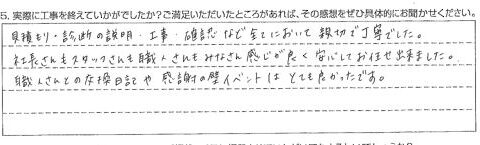 5. 実際に工事を終えていかがでしたか？ご満足いただいたところがあれば、その感想をぜひ具体的にお聞かせください。
見積もり・診断の説明・工事・確認など全てにおいて親切で丁寧でした。
社長さんもスタッフさんも職人さんもみなさん感じが良く安心してお任せ出来ました。
職人さんとの交換日記や感謝の壁イベントはとても良かったです。